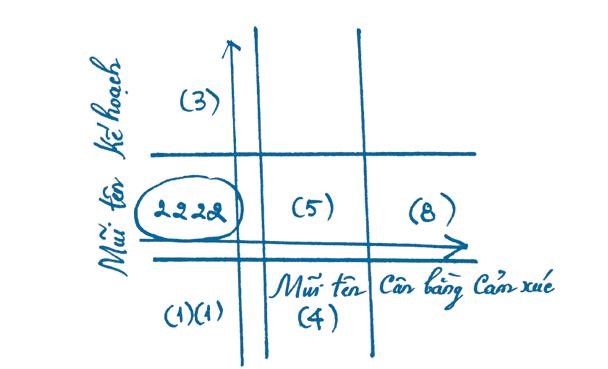 Mũi tên Kế hoạch
(3)
2222
(5)
(8)
Mũi tên Cân bằng Cảm xúc
(1)(1)
(4)